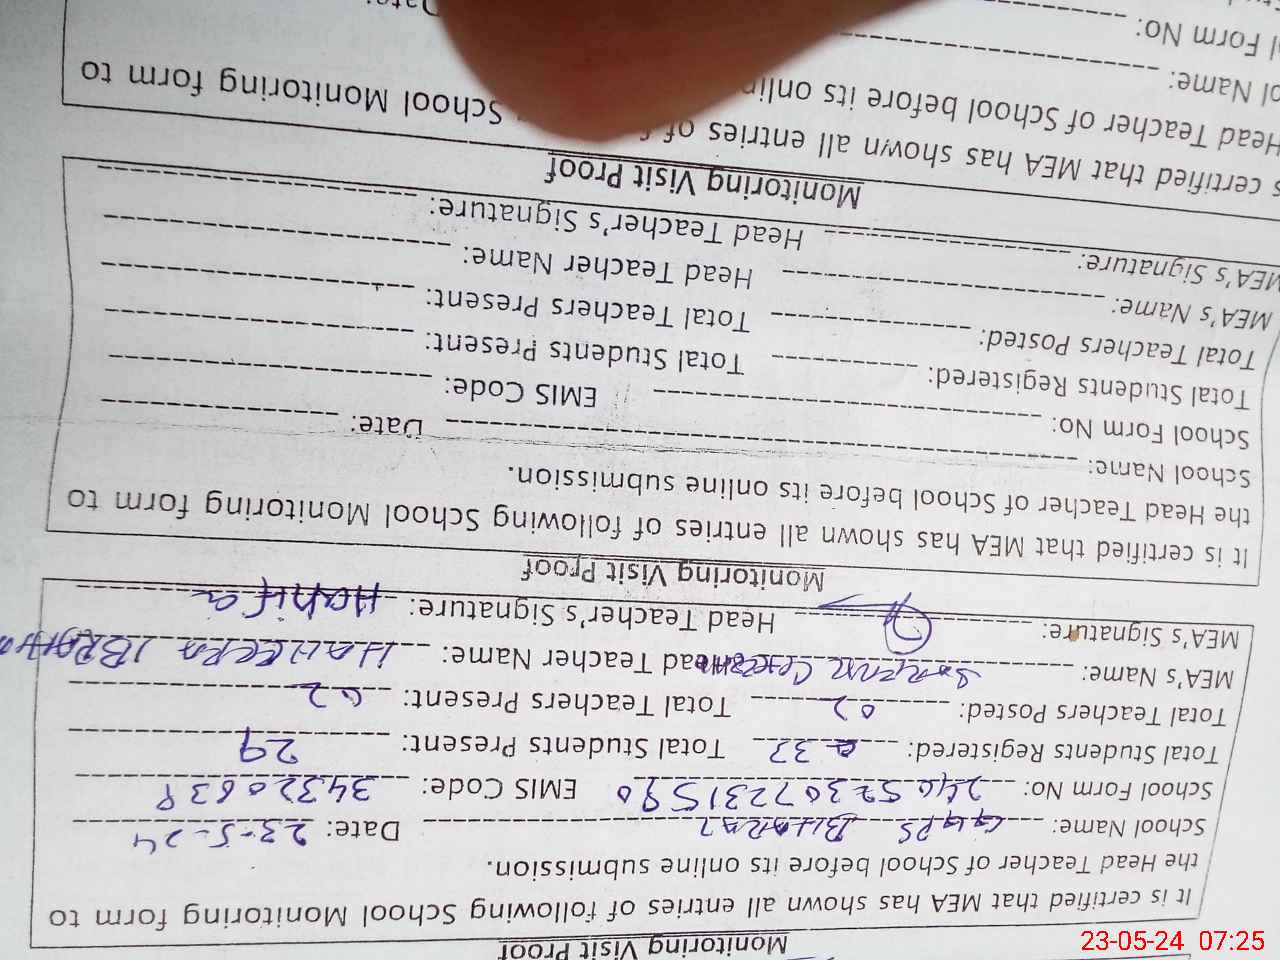 Monitoring Visit Proof
It is certified that MEA has shown all entries of following School Monitoring form to
the Head Teacher of School before its online submission.
School Name: GGPS Date: 23-5-24
School Form No: EMIS Code:
Total Students Registered: 32 Total Students Present: 29
Total Teachers Posted: 02 Total Teachers Present: 02
MEA's Name: Head Teacher Name:
MEA's Signature: Head Teacher's Signature: Hanifa
Monitoring Visit Proof
It is certified that MEA has shown all entries of following School Monitoring form to
the Head Teacher of School before its online submission.
School Name: Date:
School Form No: EMIS Code:
Total Students Registered: Total Students Present:
Total Teachers Posted: Total Teachers Present:
MEA's Name: Head Teacher Name:
MEA's Signature: Head Teacher's Signature:
Monitoring Visit Proof
s certified that MEA has shown all entries of School Monitoring form to
Head Teacher of School before its onlin
ol Name:
l Form No: Date:
23-05-24 07:25